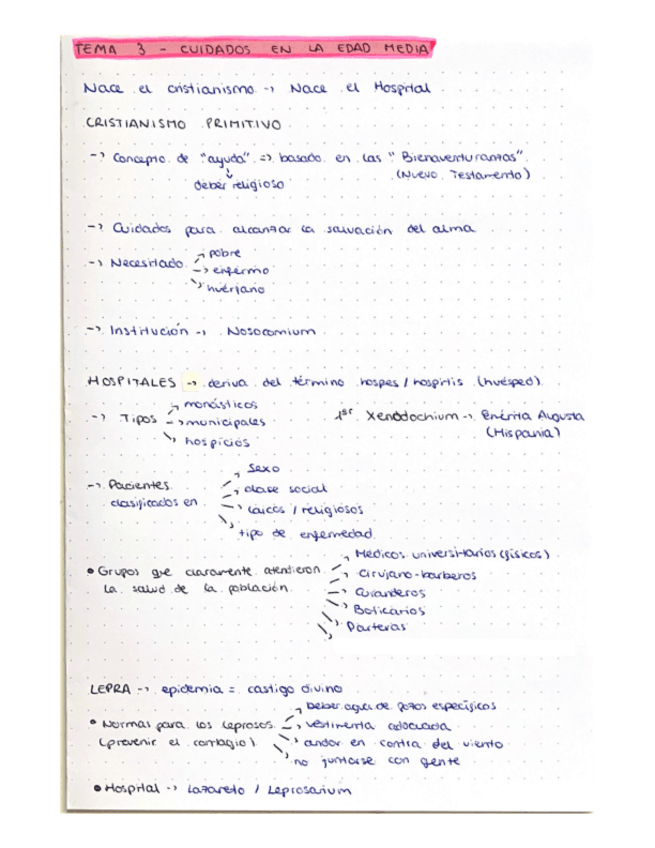 TEMA 3 - CUIDADOS EN LA EDAD MEDIA
Nace el cristianismo -> Nace el Hospital
CRISTIANISMO PRIMITIVO
-> Concepto de "ayuda" => basado en las "Bienaventuranzas"
↓ (Nuevo Testamento)
deber religioso
-> Cuidados para alcanzar la salvación del alma
-> Necesitado -> pobre
-> enfermo
-> huérfano
-> Institución -> Nosocomium
HOSPITALES -> deriva del término hospes / hospitis (huésped)
-> Tipos -> monásticos
-> municipales
-> hospicios
1er Xenodochium -> Emérita Augusta
(Hispania)
-> Pacientes clasificados en
-> sexo
-> clase social
-> laicos / religiosos
-> tipo de enfermedad
• Grupos que claramente atendieron
la salud de la población
-> Médicos universitarios (físicos)
-> Cirujano-barberos
-> Curanderos
-> Boticarios
-> Parteras
LEPRA -> epidemia = castigo divino
• Normas para los leprosos
(prevenir el contagio)
-> beber agua de pozos específicos
-> vestimenta adecuada
-> andar en contra del viento
-> no juntarse con gente
• Hospital -> Lazareto / Leprosarium